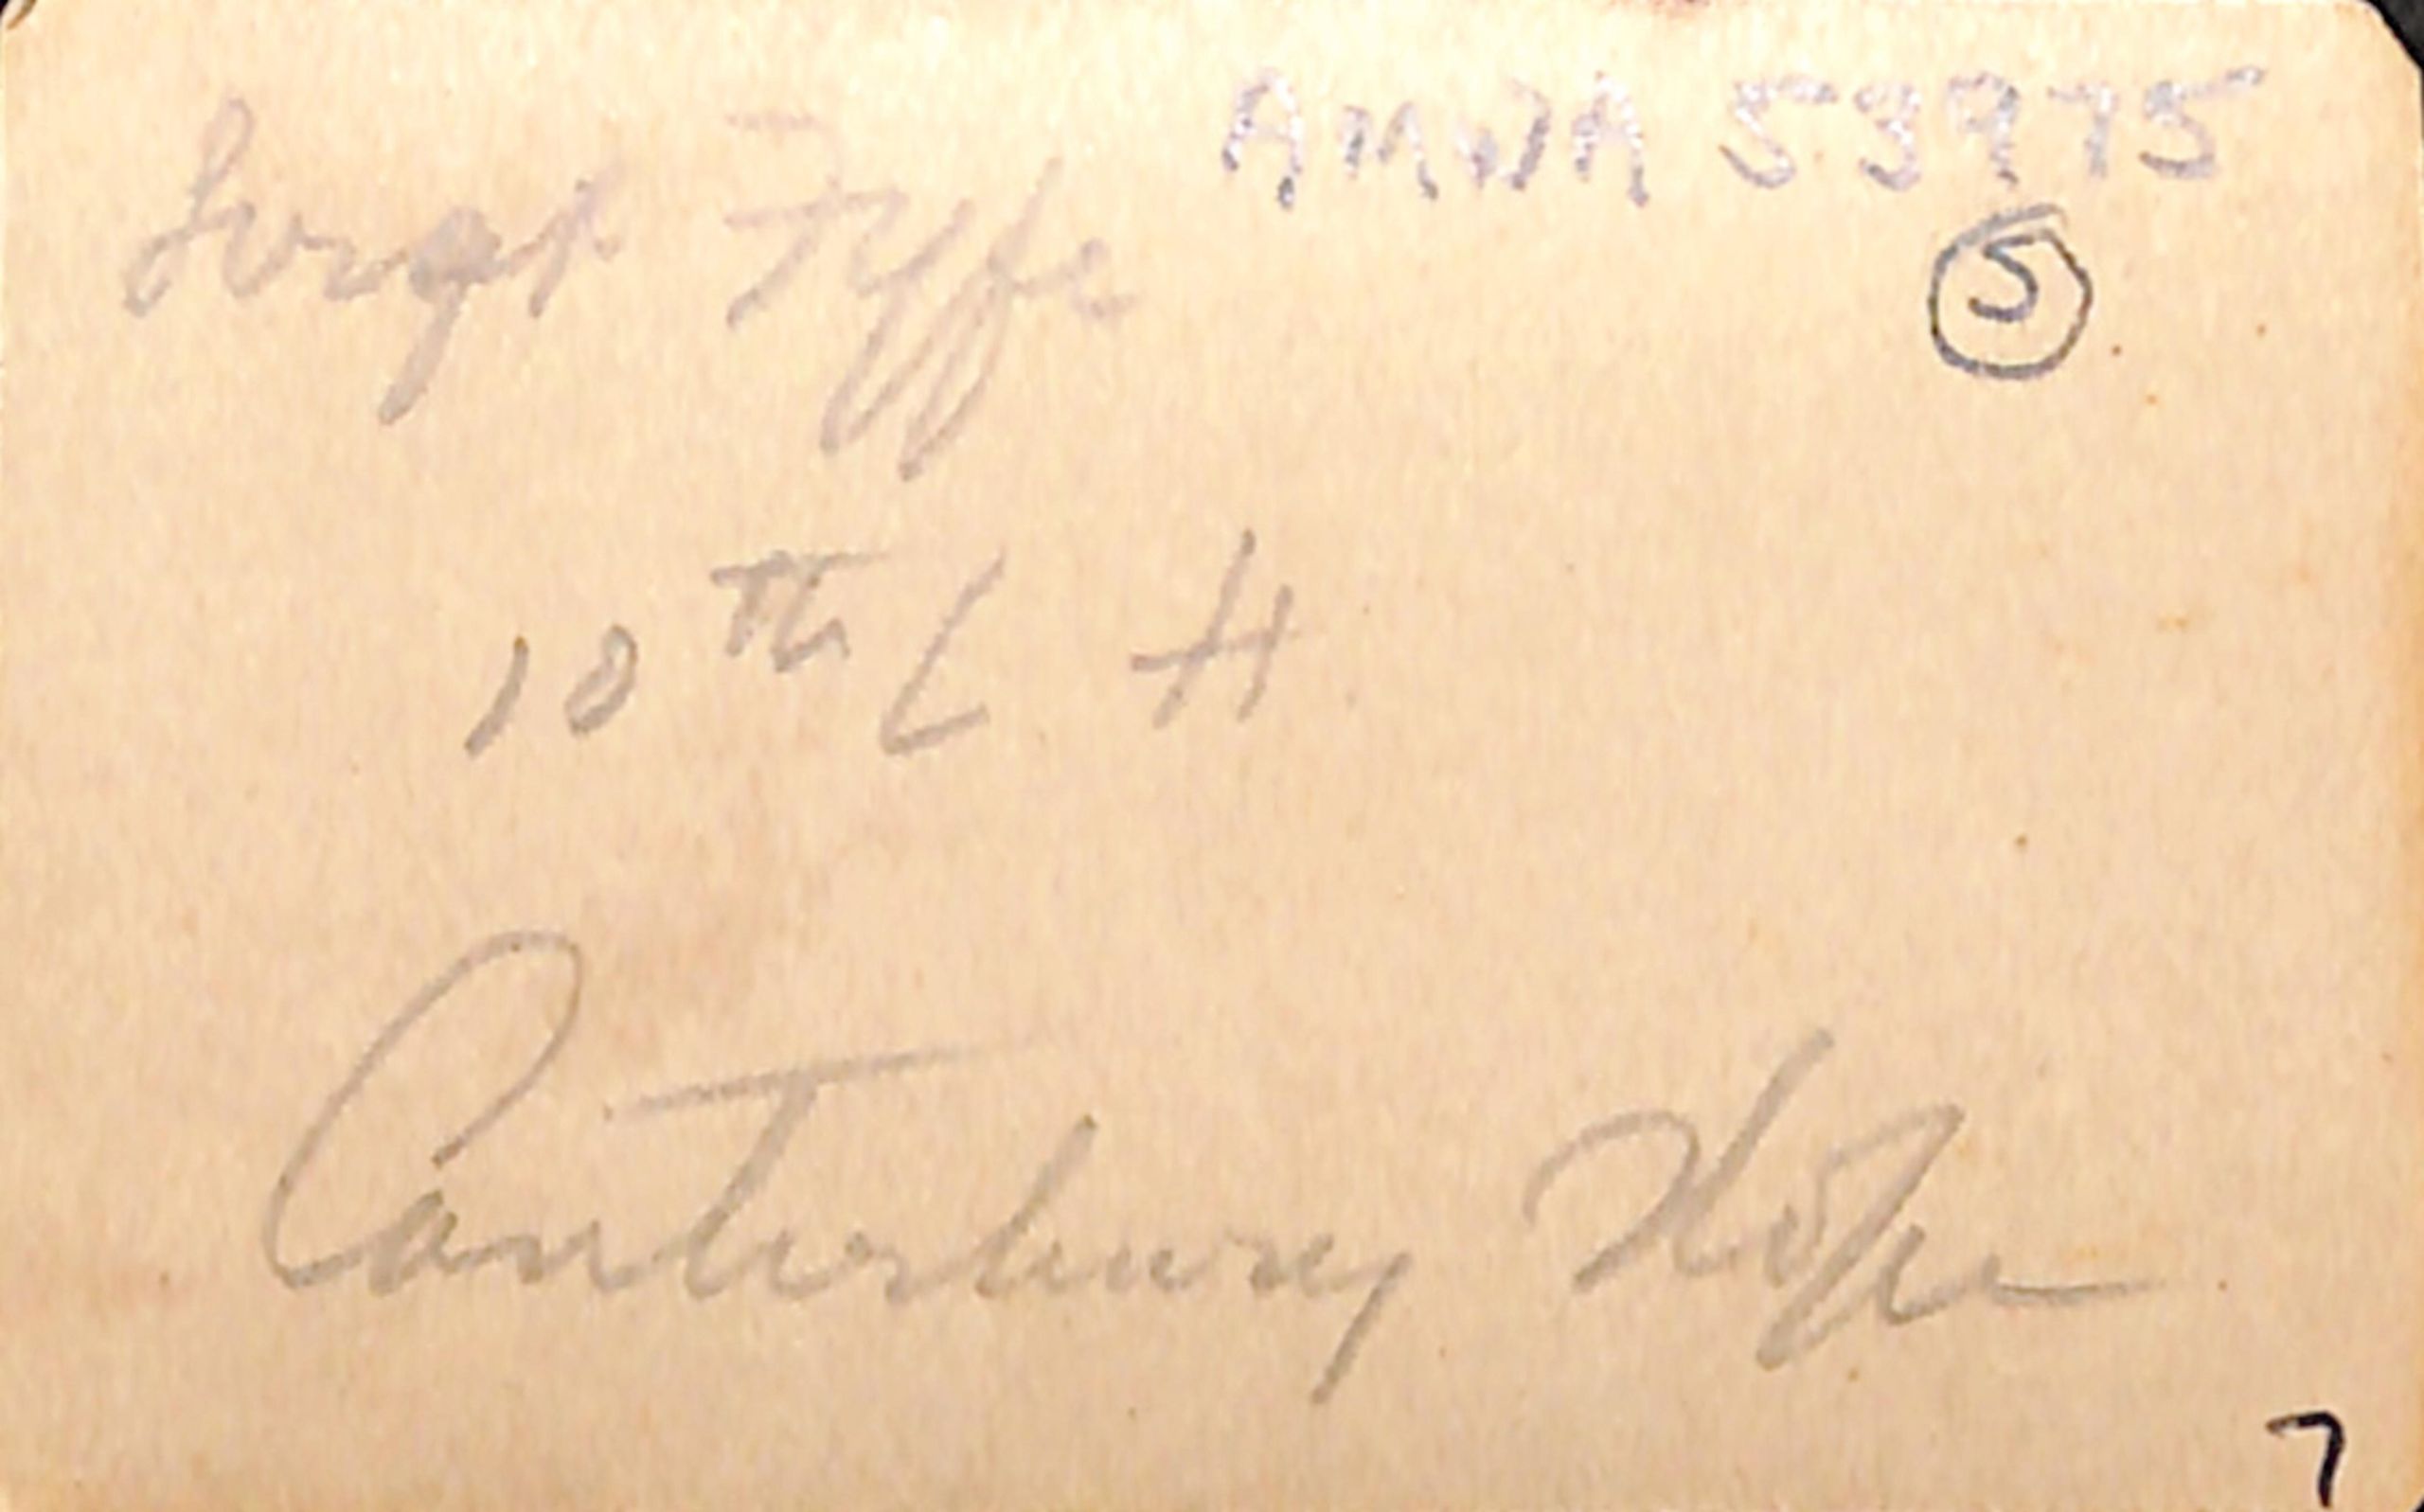 Sergt Fyffe AMWA 53975
5
10th L H
Canterbury Hope
7